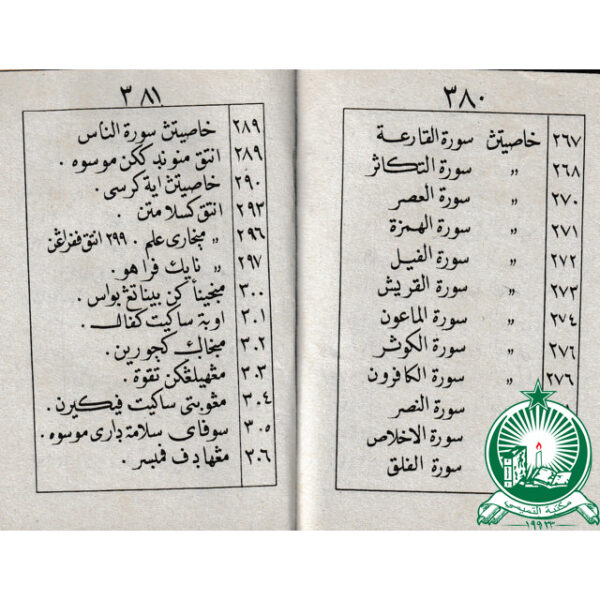 ٣٨٠
٢٦٧ خاصيتڽ سورة القارعة
٢٦٨ 〃 سورة التكاثر
٢٧٠ 〃 سورة العصر
٢٧١ 〃 سورة الهمزة
٢٧٢ 〃 سورة الفيل
٢٧٣ 〃 سورة القريش
٢٧٤ 〃 سورة الماعون
٢٧٦ 〃 سورة الكوثر
٢٧٦ 〃 سورة الكافرون
سورة النصر
سورة الاخلاص
سورة الفلق
٣٨١
٢٨٩ خاصيتڽ سورة الناس
٢٨٩ انتق منوندككن موسوه .
٢٩٠ خاصيتڽ اية كرسي .
٢٩٣ انتق كسلامتن .
٢٩٦ 〃 منچاري علم . ٢٩٩ انتق ففراڠن
٢٩٧ 〃 نايك فراهو .
٣٠٠ بيناتڠ بواس .
٣٠١ اوبة ساكيت كفال .
٣٠٢ كچورين .
٣٠٣ مڠهيلڠكن تقوة .
٣٠٤ مڠوبتي ساكيت فيكيرن .
٣٠٥ سوفاي سلامة داري موسوه .
٢٠٦ مڠهادف فمبسر .
مكتبة التميمي